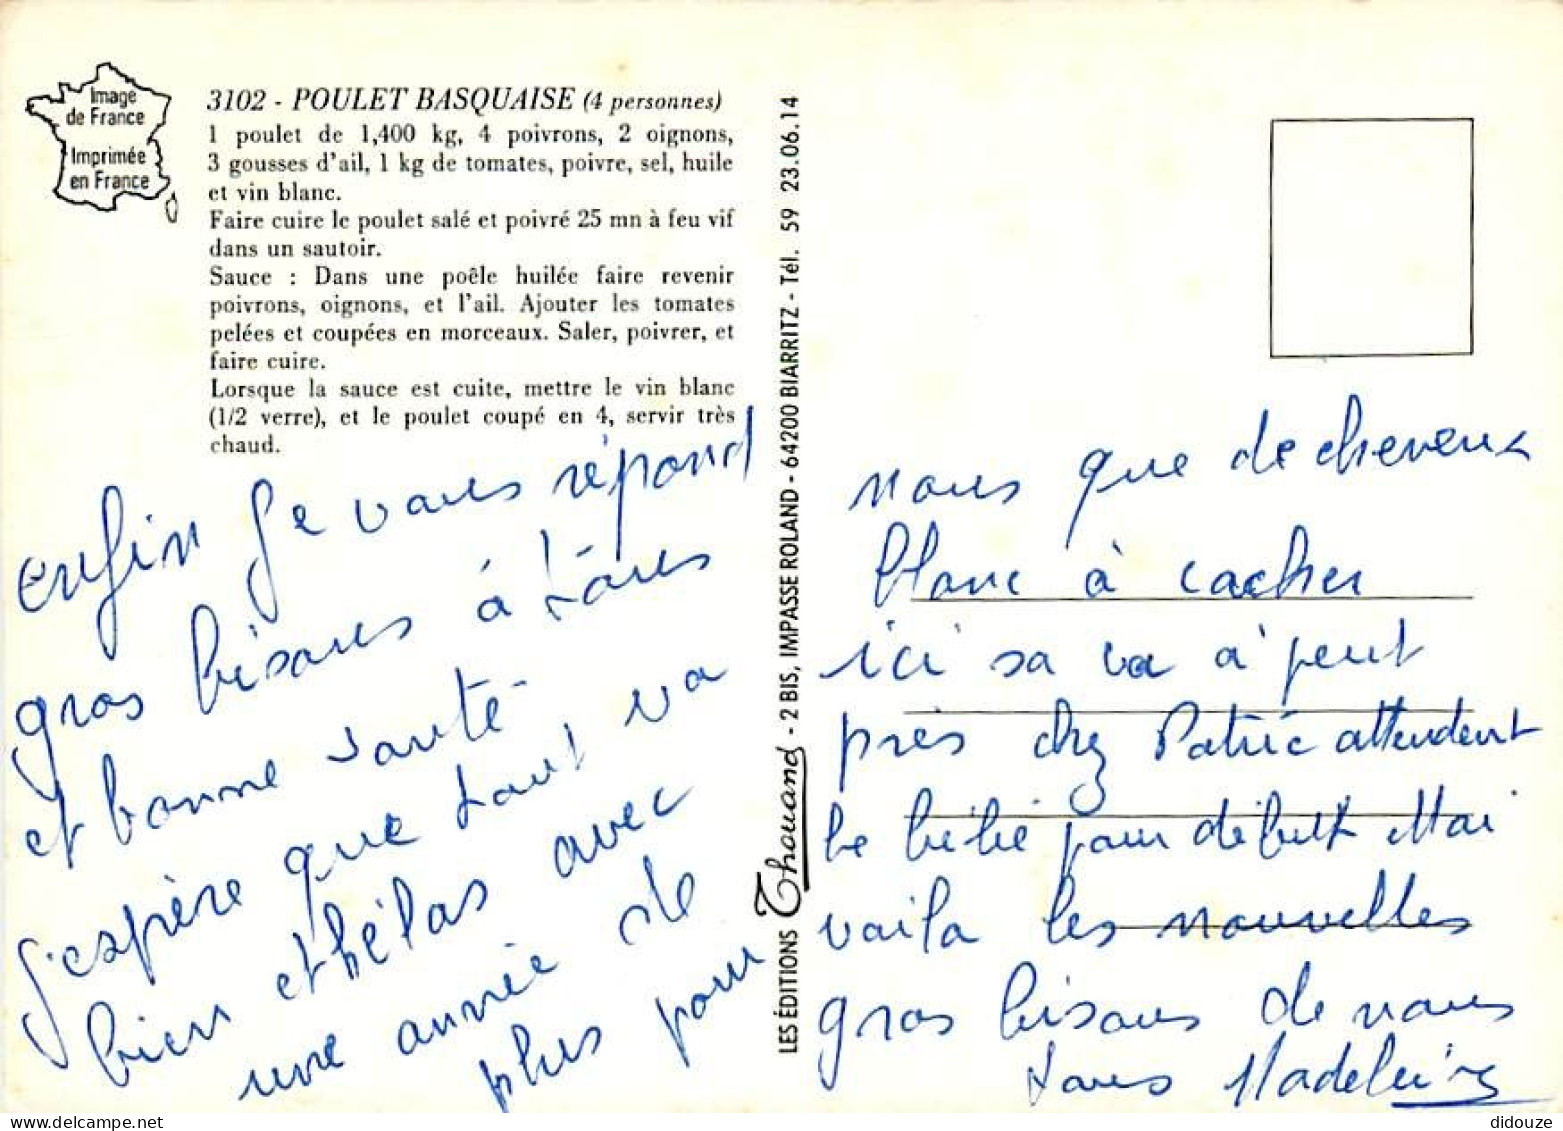 Image
de France
Imprimée
en France
3102 - POULET BASQUAISE (4 personnes)
1 poulet de 1,400 kg, 4 poivrons, 2 oignons,
3 gousses d'ail, 1 kg de tomates, poivre, sel, huile
et vin blanc.
Faire cuire le poulet salé et poivré 25 mn à feu vif
dans un sautoir.
Sauce : Dans une poêle huilée faire revenir
poivrons, oignons, et l'ail. Ajouter les tomates
pelées et coupées en morceaux. Saler, poivrer, et
faire cuire.
Lorsque la sauce est cuite, mettre le vin blanc
(1/2 verre), et le poulet coupé en 4, servir très
chaud.
enfin je vous répond
gros bisous à tous
et bonne santé
j'espère que tout va
bien et hélas avec
une année de
plus pour
LES ÉDITIONS Thouand - 2 BIS, IMPASSE ROLAND - 64200 BIARRITZ - Tél. 59 23.06.14
nous que de cheveux
blanc à cacher
ici sa va à peut
près chez Patric attendent
le bébé pour début Mai
voila les nouvelles
gros bisous de nous
tous Madeleine
didouze